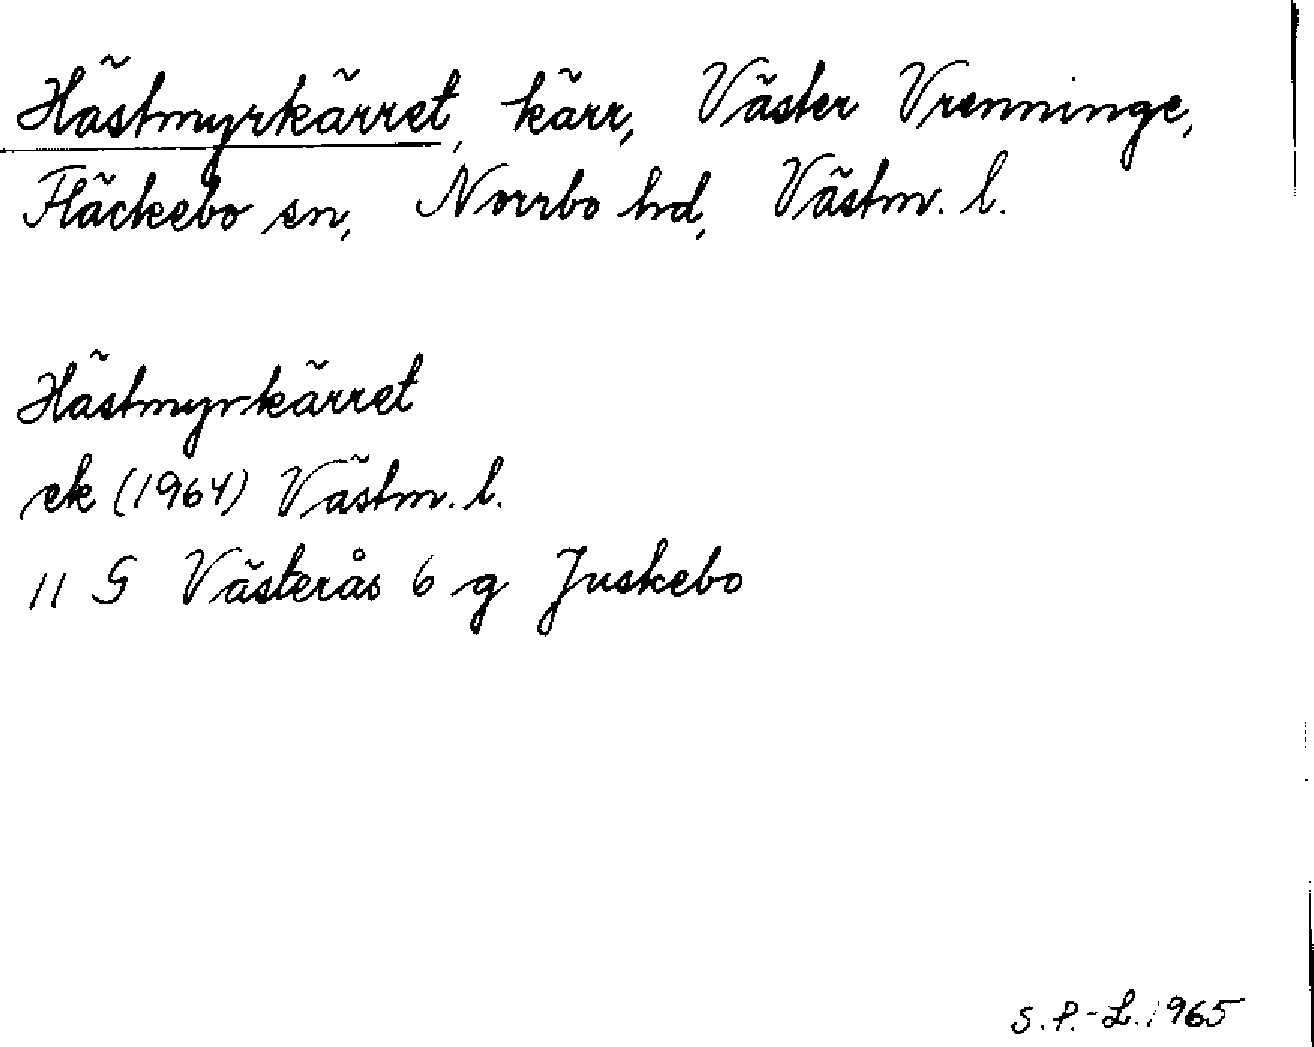 Hästmyrkärret, kärr, Väster Vrenninge,
Fläckebo sn, Norrbo hd, Västm. l.
Hästmyrkärret
ek (1964) Västm. l.
11 G Västerås 6 g Juskebo
S. P.-L. 1965